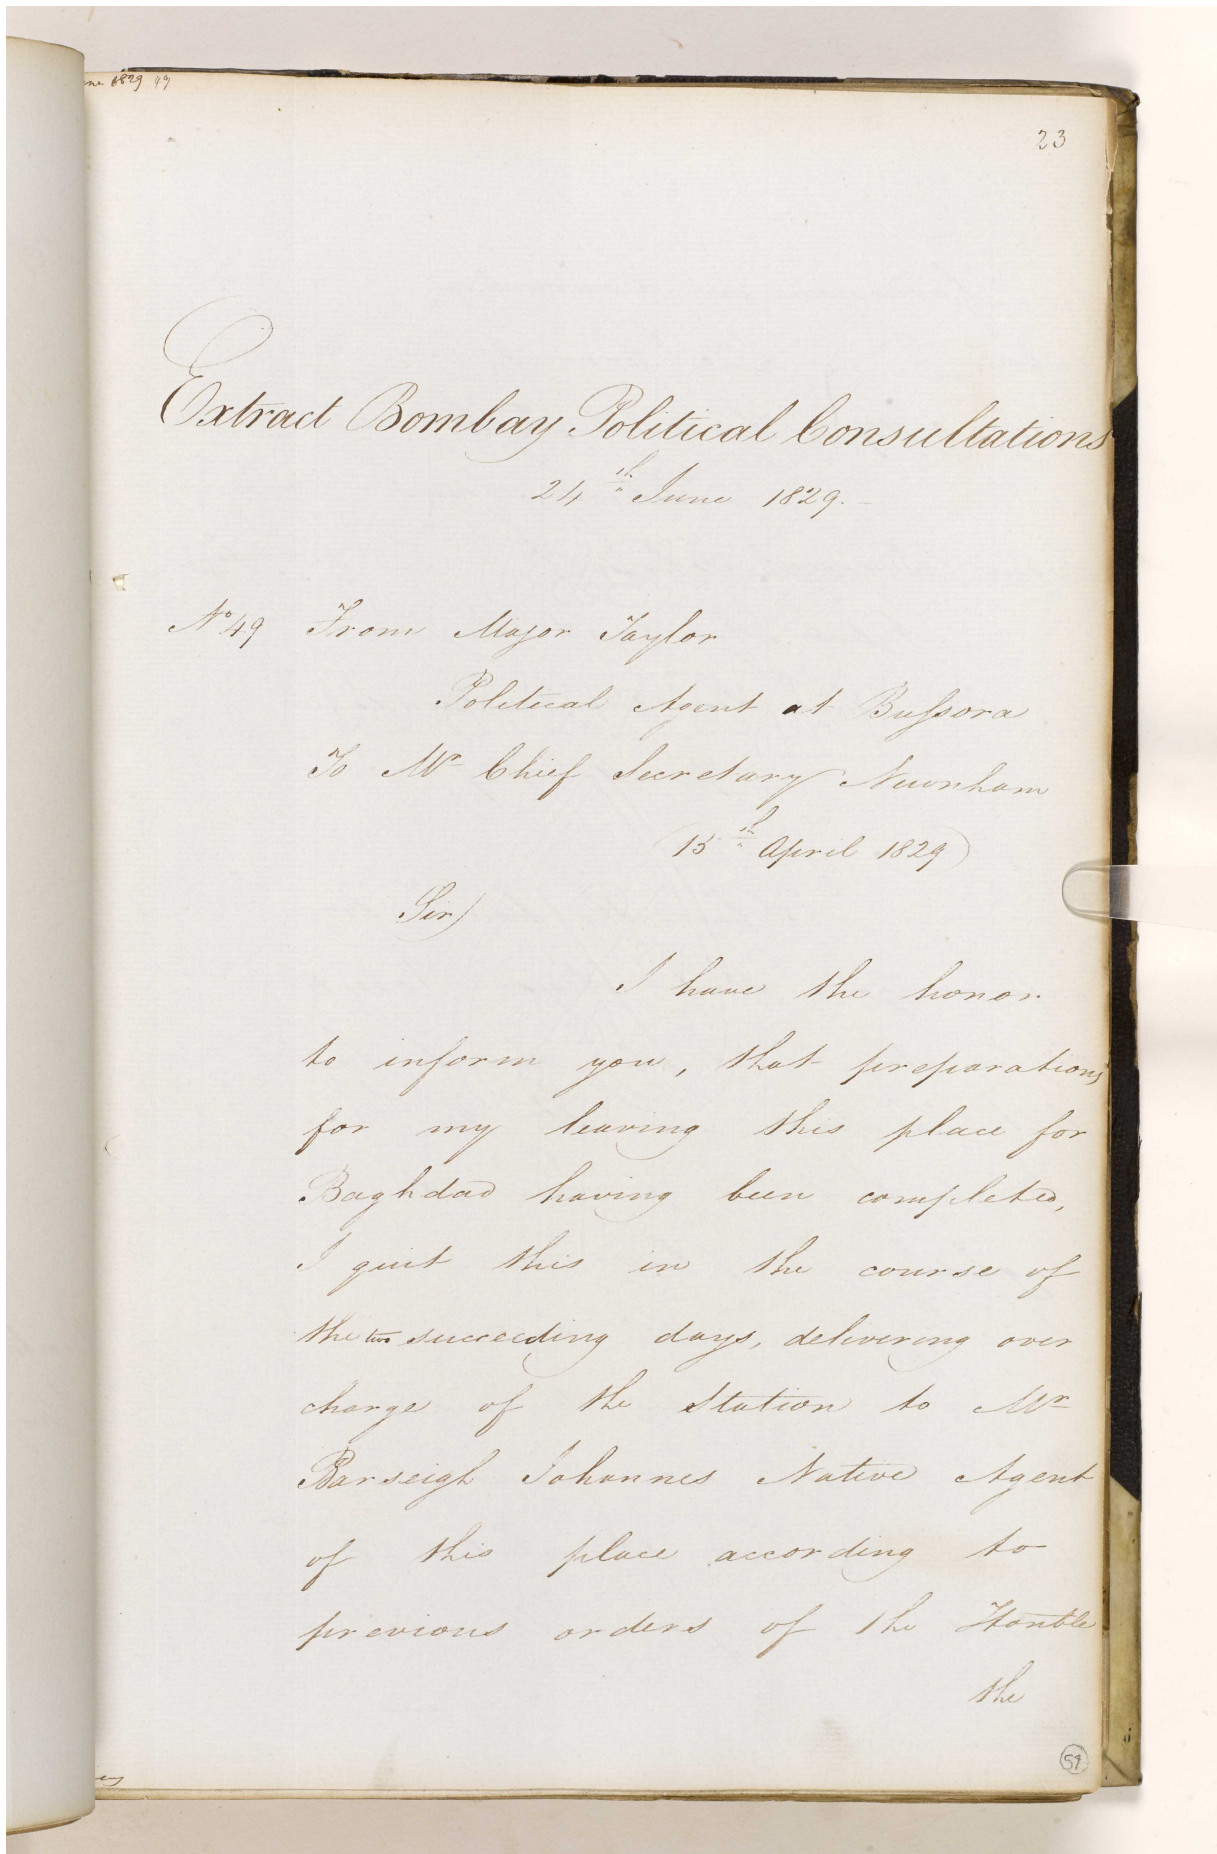 ne 1829 49
23
Extract Bombay Political Consultations
24th June 1829.
No 49 From Major Taylor
Political Agent at Bussora
To Mr Chief Secretary Newnham
(15th April 1829)
Sir,
I have the honor
to inform you, that preparations
for my leaving this place for
Baghdad having been completed,
I quit this in the course of
the two succeeding days, delivering over
charge of the Station to Mr
Barseigh Johannes Native Agent
of this place according to
previous orders of the Honble
the
59